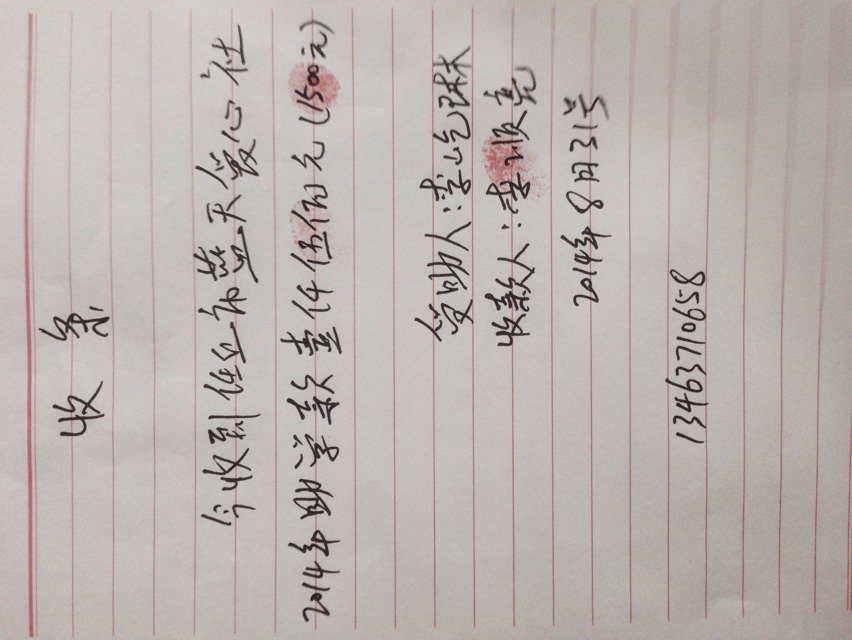 收条
今收到任丘市蓝天爱心社
2014年助学款壹仟伍佰元(1500元)
受助人:李屹琳
收款人:李顺亮
2014年8月31号
13463710658